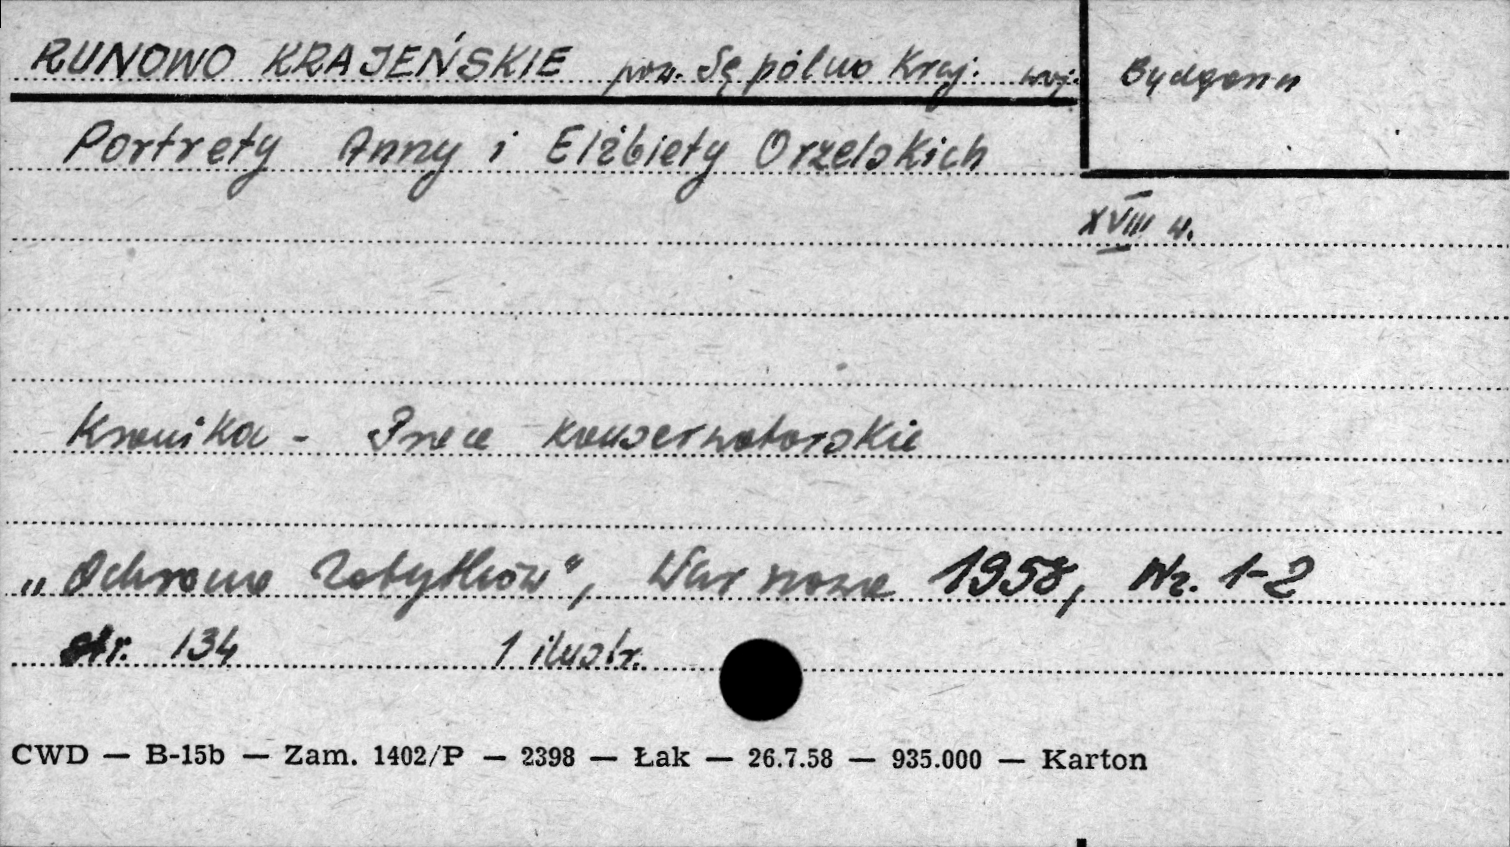 RUNOWO KRAJEŃSKIE pow. Sępólno Kraj. woj. Bydgoszcz
Portrety Anny i Elżbiety Orzelskich
XVIII w.
Kronika - Prace konserwatorskie
„Ochrona Zabytków", Warszawa 1958, Nr. 1-2
str. 134 1 ilustr.
CWD — B-15b — Zam. 1402/P — 2398 — Łak — 26.7.58 — 935.000 — Karton